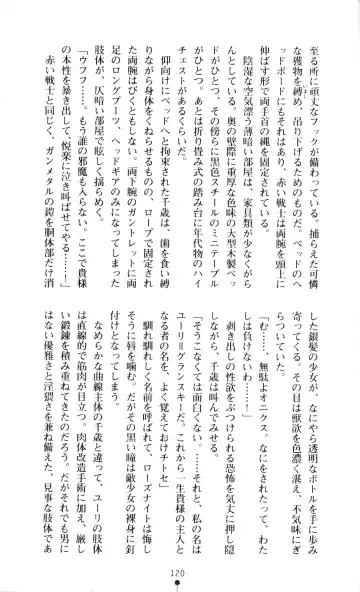 至る所に頑丈なフックが備わっている。捕らえた可憐
な獲物を縛め、吊り下げるためのものだ。ベッドのヘ
ッドボードにもそれはあり、赤い戦士は両腕を頭上に
伸ばす形で両手首の縄を固定されている。
陰湿な空気漂う薄暗い部屋は、家具類が少なくがら
んとしている。奥の壁際に重厚な色味の大型木製ベッ
ドがひとつ、その傍らに黒色スチールのミニテーブル
がひとつ。あとは折り畳み式の踏み台に年代物のハイ
チェストがあるくらいだ。
仰向けにベッドへと拘束された千歳は、歯を食い縛
りながら身体をくねらせるものの、ロープで固定され
た両腕はびくともしない。両下腕のガントレットに両
足のロングブーツ、ヘッドギアのみになってしまった
肢体が、仄暗い部屋で眩しく揺らめく。
「ウフフ……。もう誰の邪魔も入らない。ここで貴様
の本性を暴き出して、悦楽に泣き叫ばせてやる……！」
赤い戦士と同じく、ガンメタルの鎧を胴体部だけ消
した銀髪の少女が、なにやら透明なボトルを手に歩み
寄ってくる。その目は獣欲を色濃く湛え、不気味にぎ
らついていた。
「む……、無駄よオニクス。なにをされたって、わた
しは負けないわ……！」
剥き出しの性欲をぶつけられる恐怖を気丈に押し隠
しながら、千歳は叫んでみせる。
「そうこなくては面白くない。……それと、私の名は
ユーリ＝グランスキーだ。これから一生貴様の主人と
なる者の名を、よく覚えておけチトセ」
馴れ馴れしく名前を呼ばれて、ローズナイトは悔し
そうに唇を噛む。だがその黒い瞳は敵少女の裸身に釘
付けとなってしまう。
なめらかな曲線主体の千歳と違って、ユーリの肢体
は直線的で筋肉が目立つ。肉体改造手術に加え、厳し
い鍛錬を積み重ねてきたのだろう。だがそれでも男に
はない優雅さと淫猥さを兼ね備えた、見事な肢体であ
120